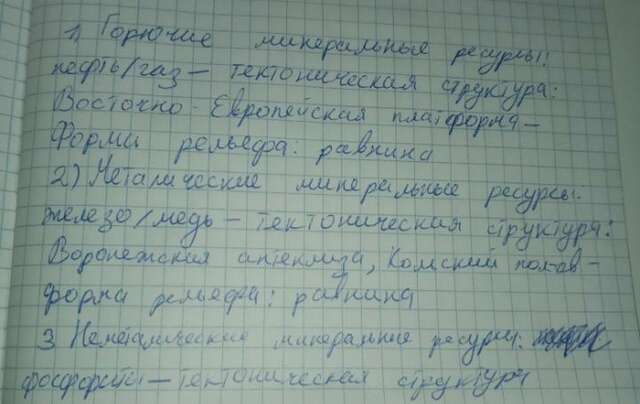 1) Горючие минеральные ресурсы:
нефть/газ — тектоническая структура:
Восточно-Европейская платформа —
Форми рельефа: равнина
2) Металические минеральные ресурсы:
железо/медь — тектоническая структура:
Воронежская антеклиза, Комский пол-ов —
форма рельефа: равнина
3 Неметалические минеральные ресурсы:
фосфориты — тектоническая структура